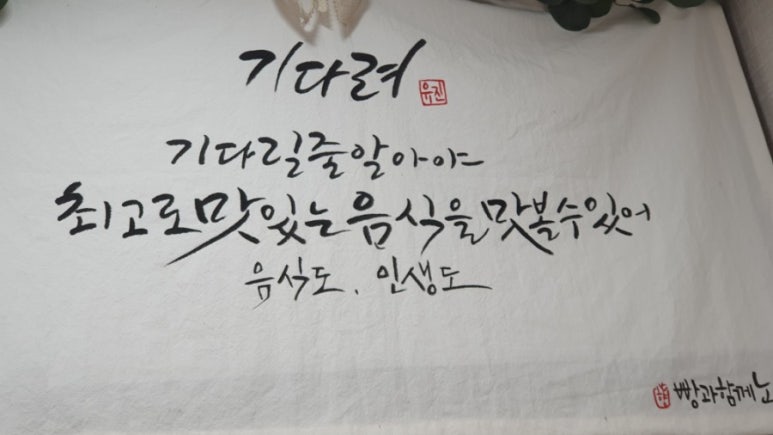 기다려
유진
기다릴줄알아야
최고로맛있는음식을맛볼수있어
음식도, 인생도
빵과함께노